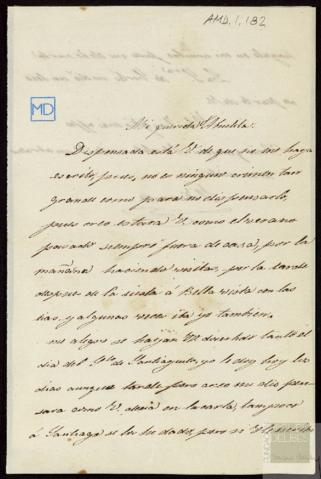 AMD, I, 182
MD
Mi querida Abuelita:
Dispensada está V. de que no me haya
escrito, pues, no es ningun crimen tan
grande como para no dispensarlo,
pues creo estara V. como el verano
pasado siempre fuera de casa, por la
mañana haciendo visitas, por la tarde
despues de la siesta á Bella vista con las
tias, y algunas veces iria yo tambien.
me alegro se hayan Vs divertido tanto el
dia del Sto de Santiaguito, yo le doy hoy los
dias aunque tarde, pero creo me dis pen
sara como V. decia en la carta, tampoco
á Santiago se los he dado, pero si V. le escribe